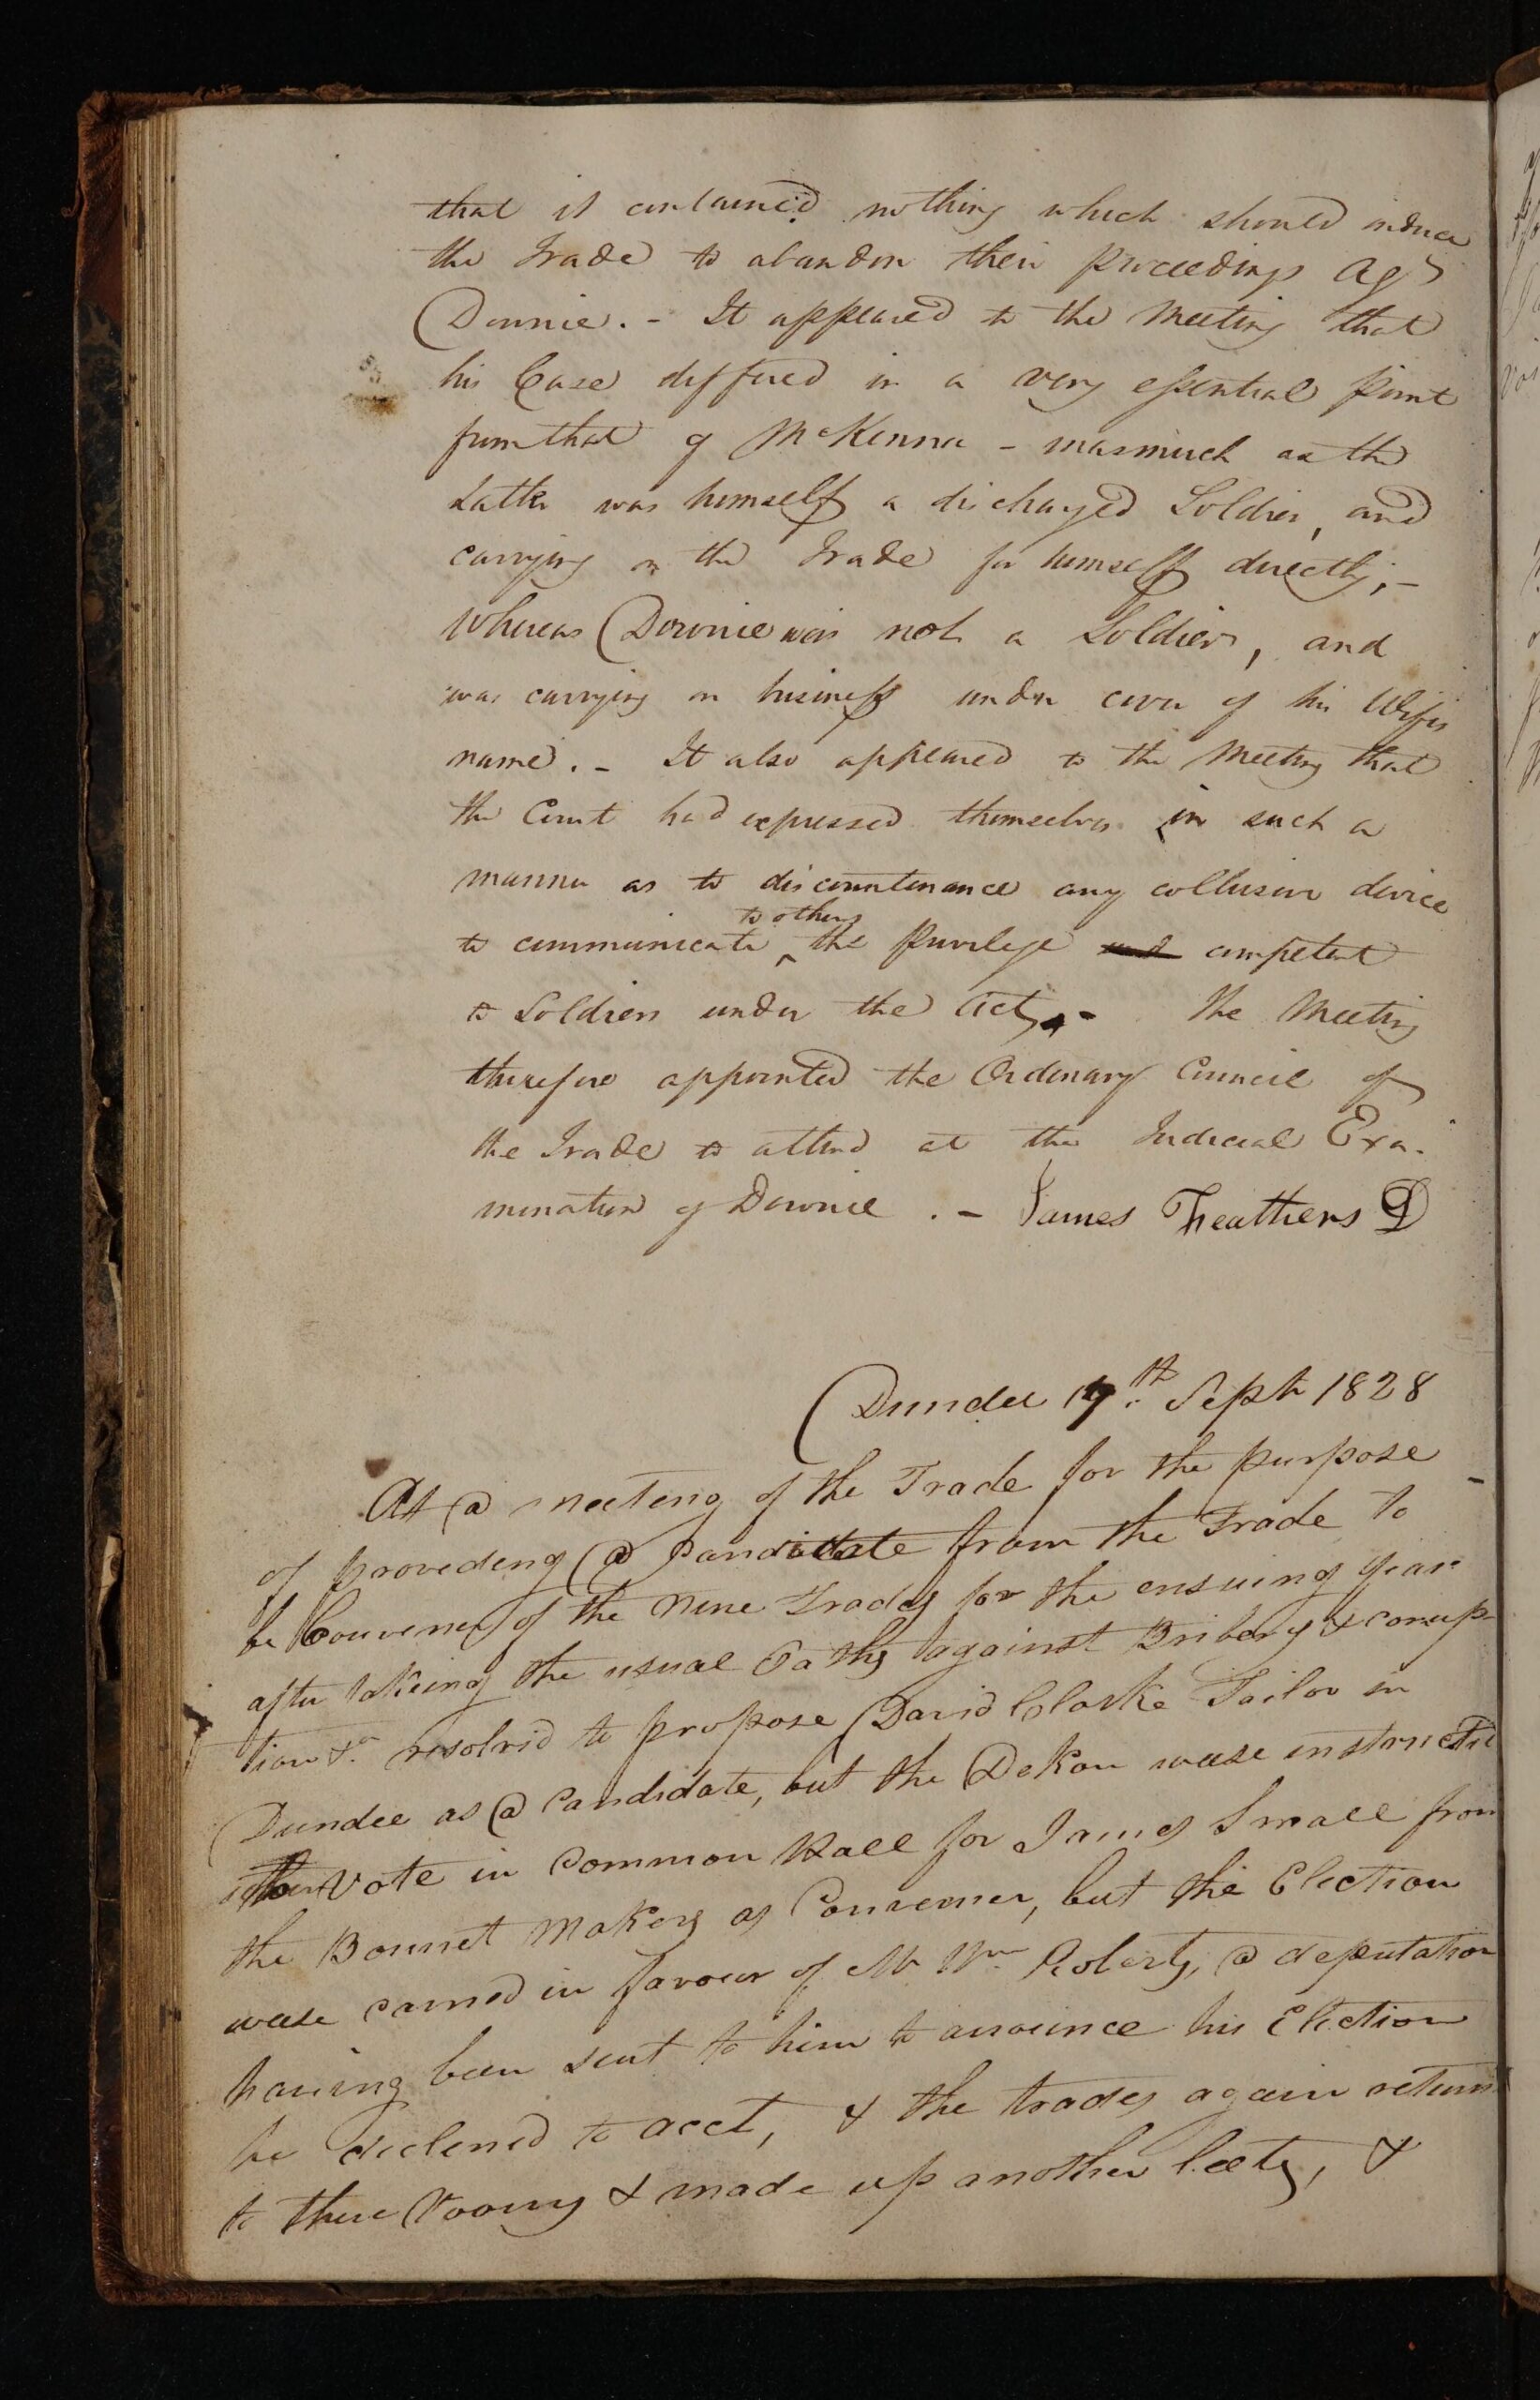 that it contained nothing which should induce
the Trade to abandon their proceedings agt
Downie. - It appeared to the Meeting that
his Case differed in a very essential point
from that of McKenna - inasmuch as the
Latter was himself a discharged Soldier, and
carrying on the Trade for himself directly; -
Whereas Downie was not a Soldier, and
was carrying on business under cover of his Wifes
name. - It also appeared to the Meeting that
the Court had expressed themselves in such a
manner as to discountenance any collusive device
to communicate to others the privilege competent
to Soldiers under the Act. - The Meeting
therefore appointed the Ordinary Council of
the Trade to attend at the Judicial Exa-
mination of Downie. - James Feathers D
Dundee 17th Septr 1828
At a meeting of the Trade for the purpose
of provideng a Candidate from the Trade to
be Convener of the Nine Trades for the ensuing year
after takeing the usual Oaths against Bribery & corrup-
tion &c resolvid to propose David Clarke Tailor in
Dundee as a Candidate, but the Dekon wase instructed
to Vote in Common Hall for James Small from
the Bonnet Makers as Convener, but the Election
wase carried in favour of Mr Wm Roberts, a deputation
having been sent to him to anounce his Election
he declened to acct, & the trades again return
to there Rooms & made up another leets, &